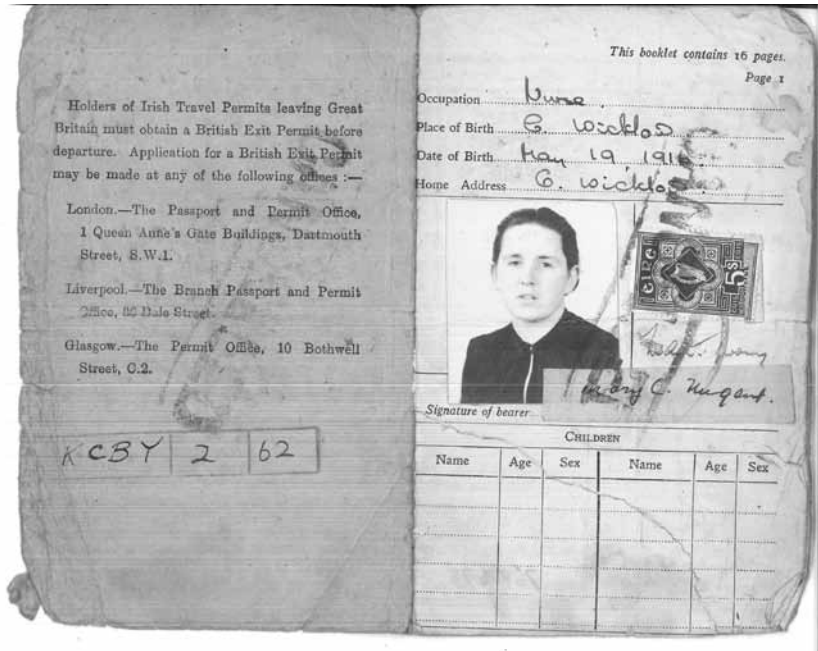 Holders of Irish Travel Permits leaving Great
Britain must obtain a British Exit Permit before
departure. Application for a British Exit Permit
may be made at any of the following offices :—
London.—The Passport and Permit Office,
1 Queen Anne's Gate Buildings, Dartmouth
Street, S.W.1.
Liverpool.—The Branch Passport and Permit
Office, 36 Dale Street.
Glasgow.—The Permit Office, 10 Bothwell
Street, C.2.
KCBY 2 62
This booklet contains 16 pages.
Page 1
Occupation Nurse
Place of Birth Co. Wicklow
Date of Birth May 19 191
Home Address Co. Wicklow
EIRE
5s
Mary C. Nugent.
Signature of bearer
CHILDREN
Name Age Sex Name Age Sex